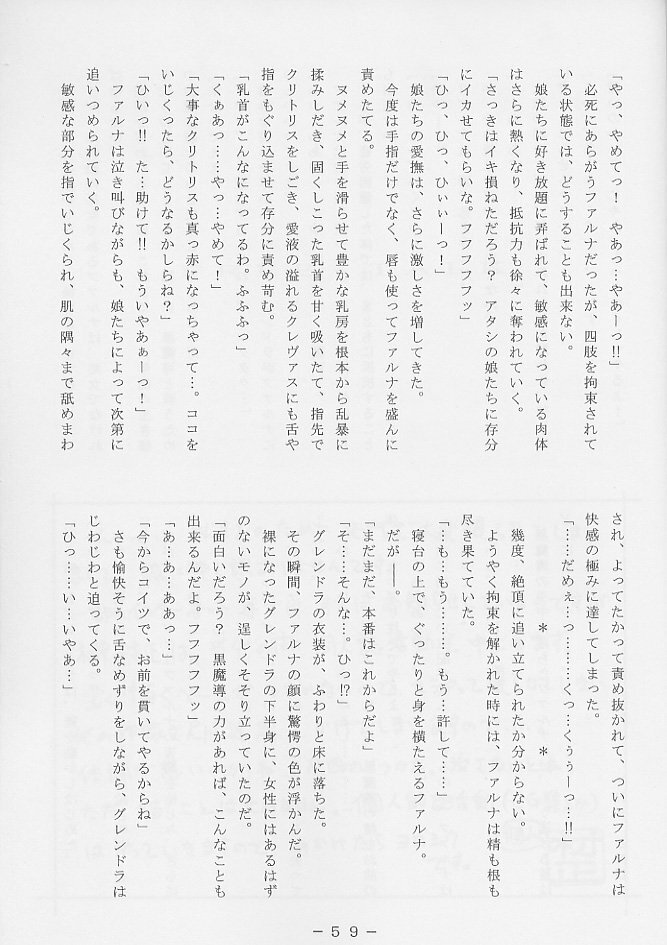 「やっ、やめてっ！　やあっ…やあーっ!!」
必死にあらがうファルナだったが、四肢を拘束されて
いる状態では、どうすることも出来ない。
娘たちに好き放題に弄ばれて、敏感になっている肉体
はさらに熱くなり、抵抗力も徐々に奪われていく。
「さっきはイキ損ねただろう？　アタシの娘たちに存分
にイカせてもらいな。フフフフッ」
「ひっ、ひっ、ひぃぃーっ！」
娘たちの愛撫は、さらに激しさを増してきた。
今度は手指だけでなく、唇も使ってファルナを盛んに
責めたてる。
ヌメヌメと手を滑らせて豊かな乳房を根本から乱暴に
揉みしだき、固くしこった乳首を甘く吸いたて、指先で
クリトリスをしごき、愛液の溢れるクレヴァスにも舌や
指をもぐり込ませて存分に責め苛む。
「乳首がこんなになってるわ。ふふふっ」
「くぁあっ……やっ…やめて！」
「大事なクリトリスも真っ赤になっちゃって…。ココを
いじくったら、どうなるかしらね？」
「ひいっ!!　た…助けて!!　もういやあぁーっ！」
ファルナは泣き叫びながらも、娘たちによって次第に
追いつめられていく。
敏感な部分を指でいじくられ、肌の隅々まで舐めまわ
され、よってたかって責め抜かれて、ついにファルナは
快感の極みに達してしまった。
「……だめぇ…っ………くっ…くぅぅーっ…!!」
＊　　　＊
幾度、絶頂に追い立てられたか分からない。
ようやく拘束を解かれた時には、ファルナは精も根も
尽き果てていた。
「…も…もう………。もう…許して……」
寝台の上で、ぐったりと身を横たえるファルナ。
だが――。
「まだまだ、本番はこれからだよ」
「そ……そんな…。ひっ!?」
グレンドラの衣装が、ふわりと床に落ちた。
その瞬間、ファルナの顔に驚愕の色が浮かんだ。
裸になったグレンドラの下半身に、女性にはあるはず
のないモノが、逞しくそそり立っていたのだ。
「面白いだろう？　黒魔導の力があれば、こんなことも
出来るんだよ。フフフフフッ」
「あ…あ…ああっ…」
「今からコイツで、お前を貫いてやるからね」
さも愉快そうに舌なめずりをしながら、グレンドラは
じわじわと迫ってくる。
「ひっ……い…いやあ…」
－５９－